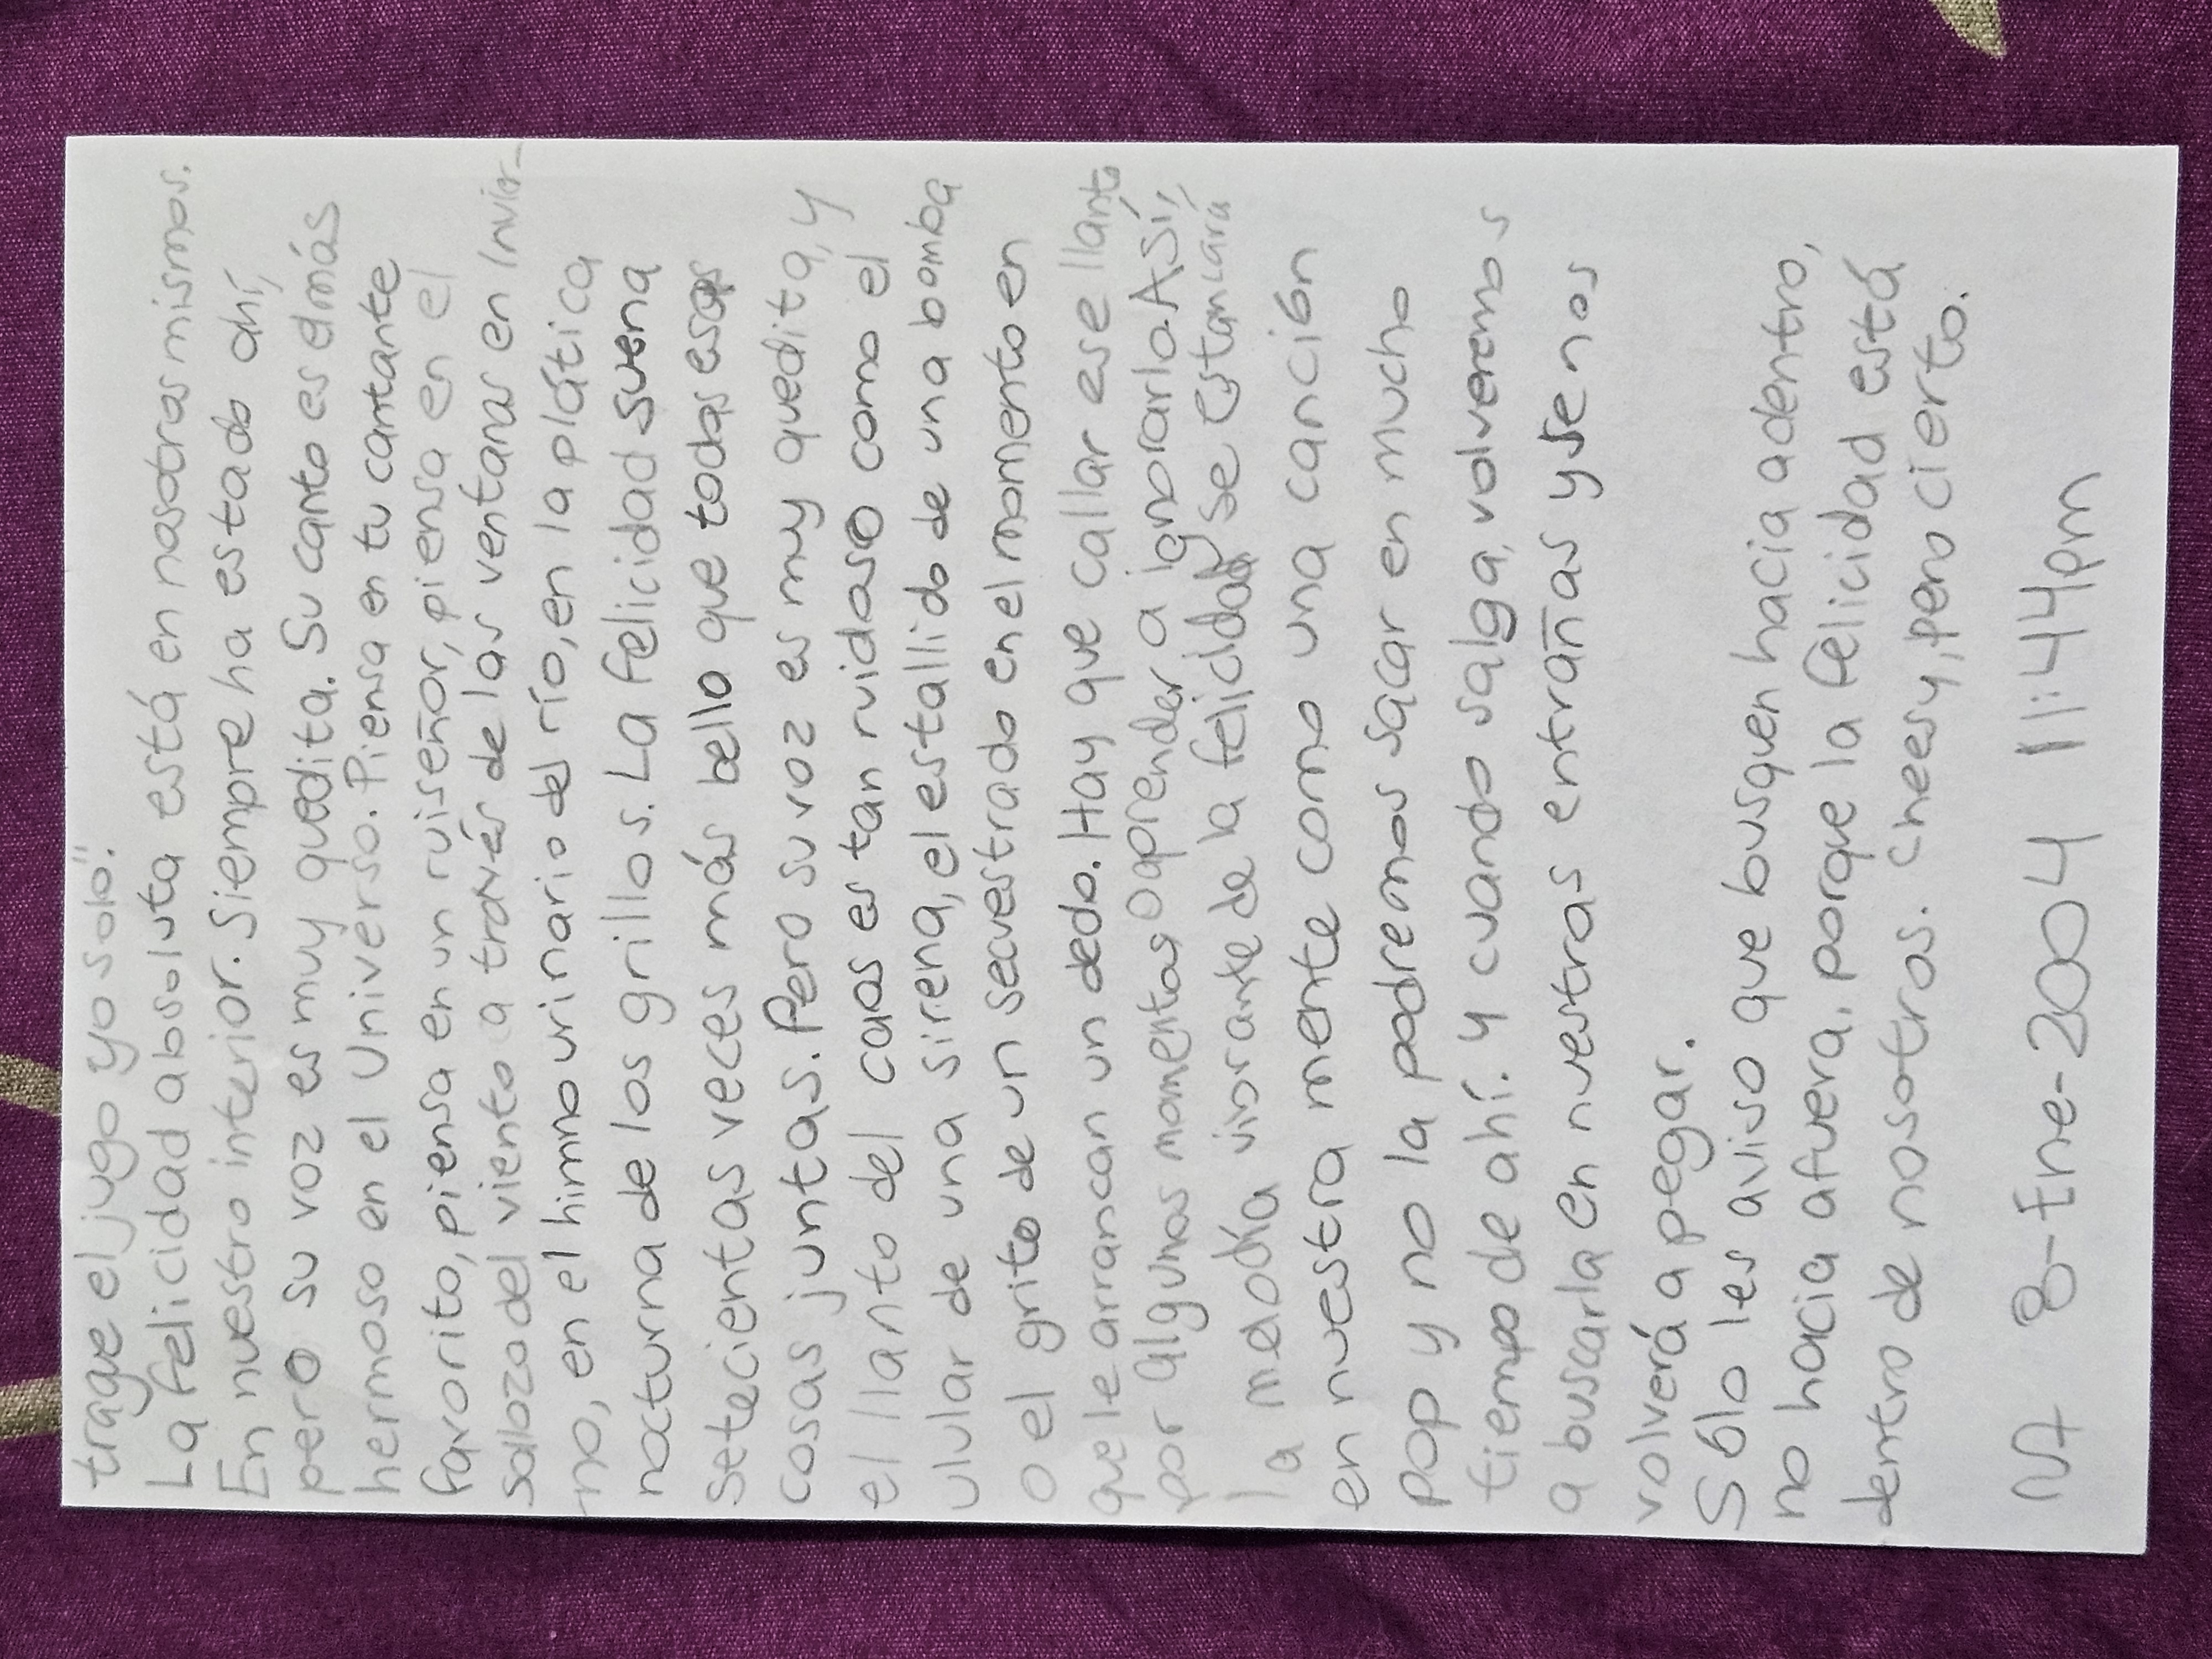 trague el jugo yo solo".
La felicidad absoluta está en nosotros mismos.
En nuestro interior. Siempre ha estado ahí,
pero su voz es muy quedita. Su canto es el más
hermoso en el Universo. Piensa en tu cantante
favorito, piensa en un ruiseñor, piensa en el
sollozo del viento a través de las ventanas en Invier-
no, en el himno urinario del río, en la plática
nocturna de los grillos. La felicidad suena
setecientas veces más bello que todas esas
cosas juntas. Pero su voz es muy quedita, y
el llanto del caos es tan ruidoso como el
ulular de una sirena, el estallido de una bomba
o el grito de un secuestrado en el momento en
que le arrancan un dedo. Hay que callar ese llanto
por algunos momentos o aprender a ignorarlo. Así,
la melodía vibrante de la felicidad se estancará
en nuestra mente como una canción
pop y no la podremos sacar en mucho
tiempo de ahí. Y cuando salga, volveremos
a buscarla en nuestras entrañas y se nos
volverá a pegar.
Sólo les aviso que busquen hacia adentro,
no hacia afuera, porque la felicidad está
dentro de nosotros. Cheesy, pero cierto.
8-Ene-2004 11:44pm